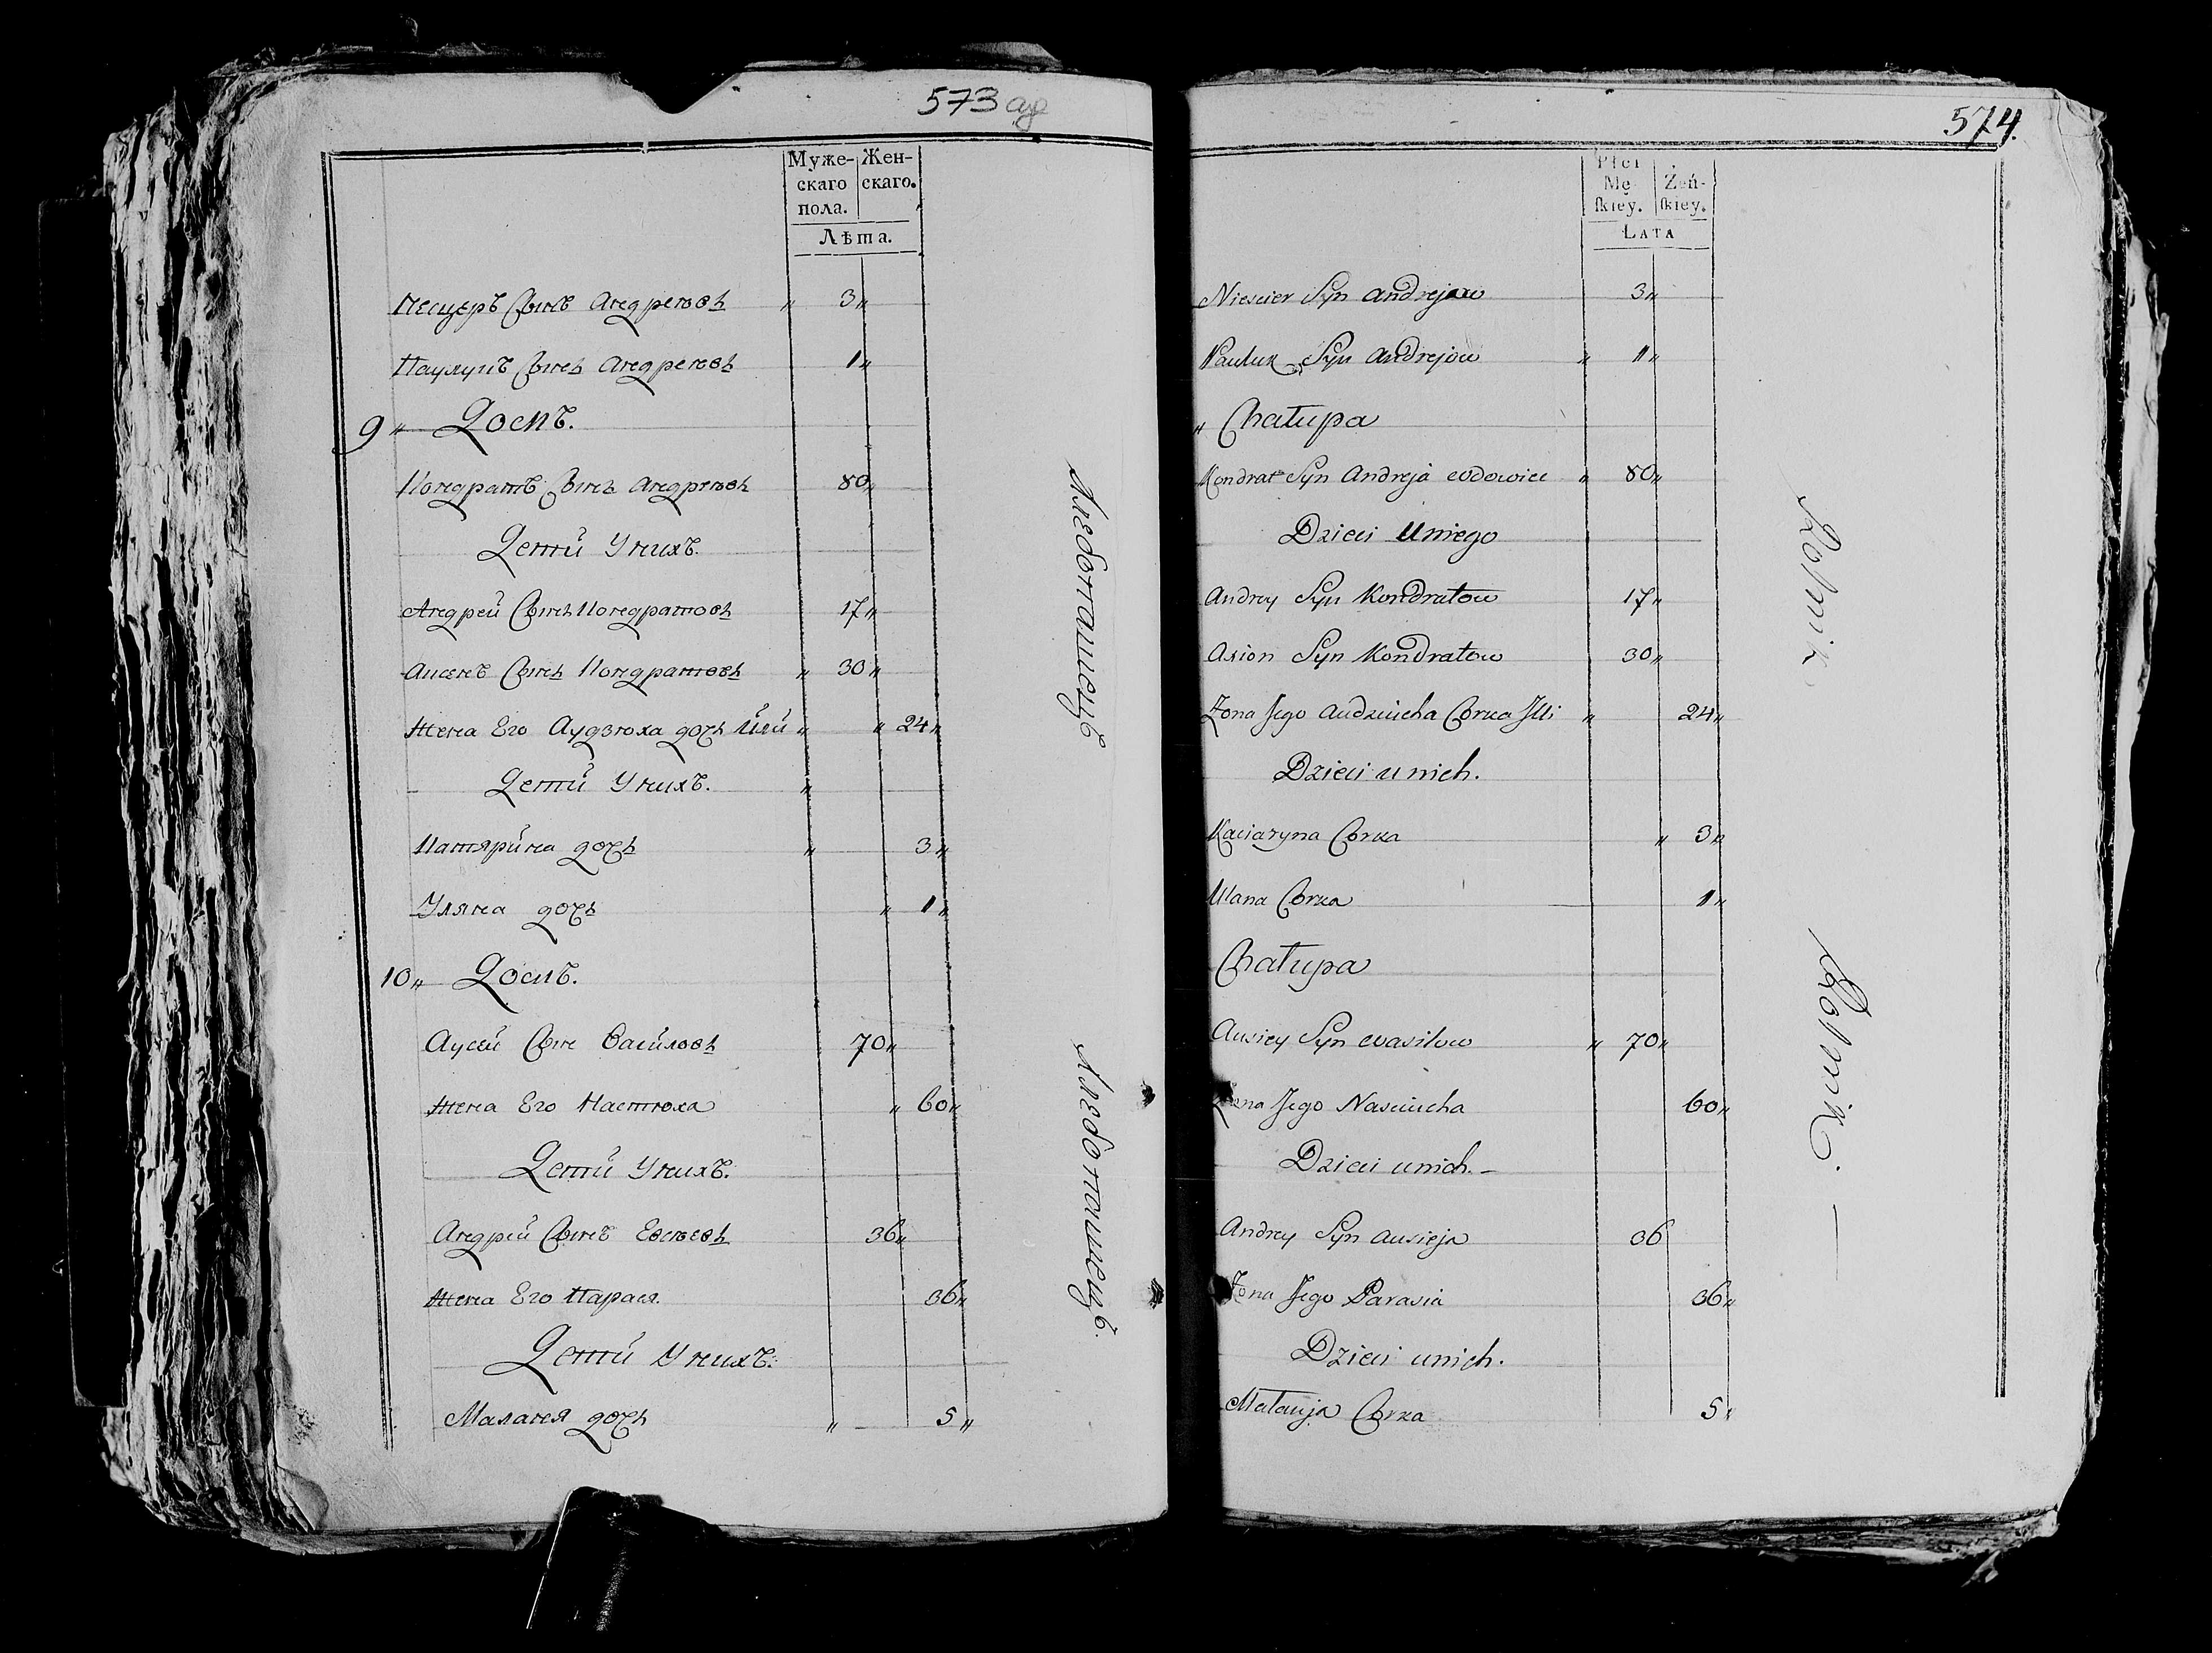 573 об
Муже- Жен-
скаго скаго.
пола.
Лѣта.
Несцеръ Сынъ Андреювъ " 3 "
Паулукъ Сынъ Андреювъ 1 "
9 " Домъ.
Кондратъ Сынъ Андреювъ 80 "
Дети Унихъ.
Андрей Сынъ Кондратовъ 17 "
Аксенъ Сынъ Кондратовъ " 30 "
Жена Его Аудзюха дочь Или " " 24 "
Дети Унихъ. "
Катярина дочь " 3 "
Уляна дочь " 1 "
10 " Домъ.
Аусей Сынъ Василювъ 70 "
Жена Его Настюха " 60 "
Дети Унихъ.
Андрей Сынъ Евсѣевъ 36 "
Жена Его Парася. 36 "
Дети Унихъ.
Маланея дочь " 5 "
Хлебопашецъ
Хлебопашецъ.
574.
Płci
Mę- Żeń-
skiey. skiey.
LATA
Niescier Syn Andrejow 3 "
Pauluk Syn Andrejow " 1 "
" Chałupa
Kondrat Syn Andreja wdowiec " 80 "
Dzieci Uniego
Andrey Syn Kondratow 17 "
Axion Syn Kondratow 30 "
Żona Jego Audziucha Corka Illi " 24 "
Dzieci u nich.
Kaciaryna Corka " 3 "
Ulana Corka 1 "
Chałupa
Ausiey Syn wasilow " 70 "
Żona Jego Nasciucha 60 "
Dzieci unich. —
Andrey Syn Ausieja 36
Żona Jego Parasia 36 "
Dzieci unich.
Małanja Corka 5 "
Rolnik
Rolnik. —